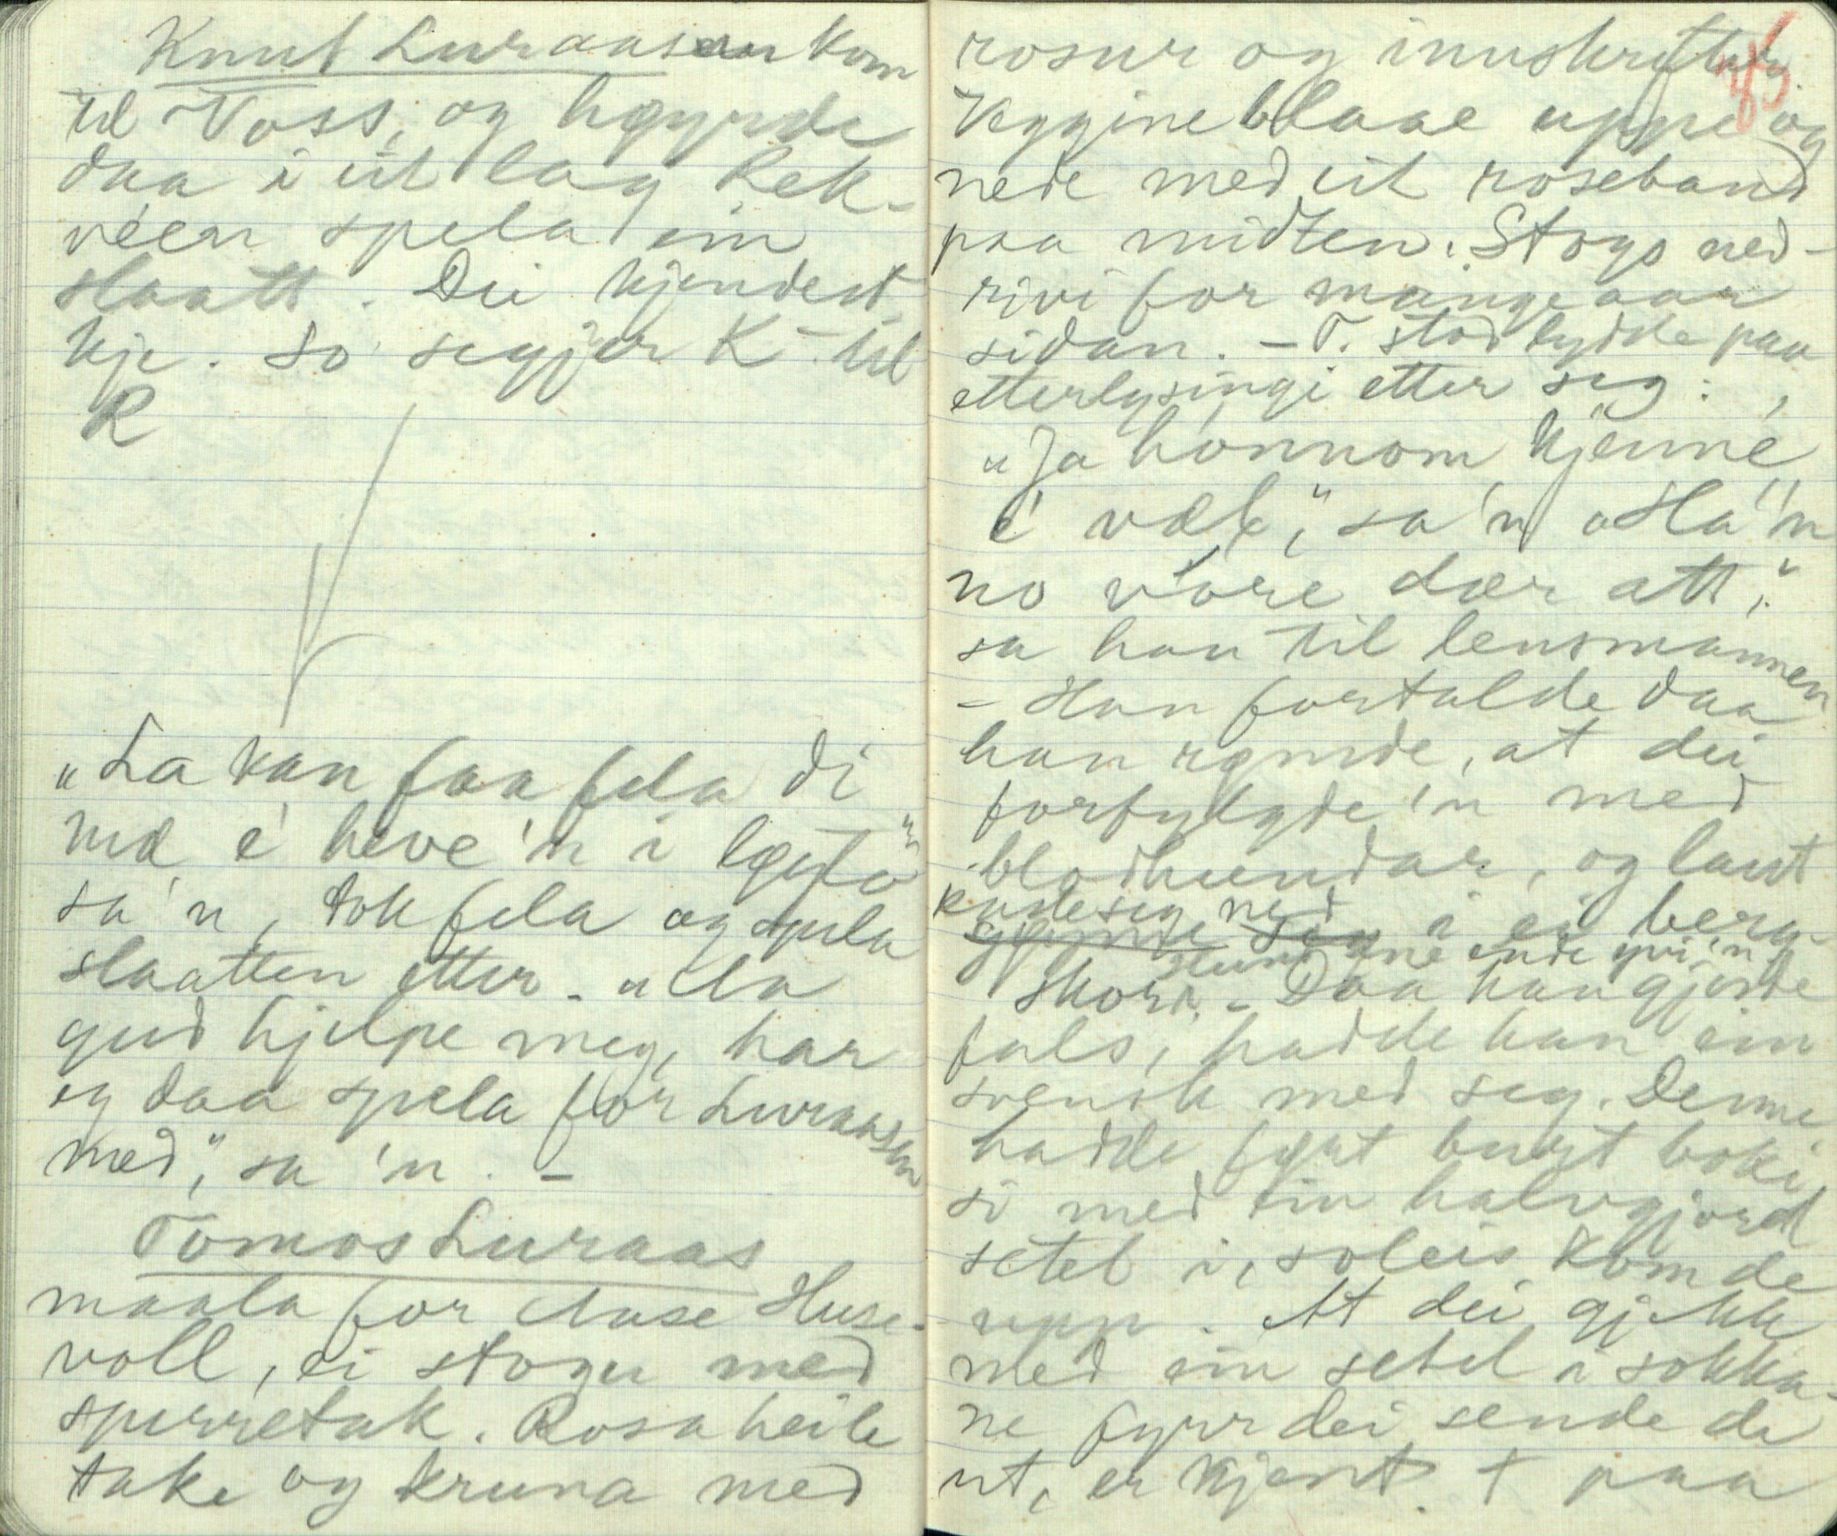 Knut Luraasen kom
til Voss, og høyrde
daa i eit lag Rek-
véen spela ein
slaatt. Dei kjendest
kje. So segjer K til
R
"La kan faa fela di
mæ e' heve 'n i
sa 'n, tok fela og spela
slaatten etter. "Aa
gud hjelpe meg, har
eg daa spela for Luraasen
med," sa 'n. -
Tomos Luraas
maala for Aase Huse-
voll, ei stogu med
sperretak. Rosa heile
take og kruna med
rosur og innskrifter.
45
Veggine blaae uppe og
nede med eit roseband
paa midten. Stogo ned-
rivi for mange aar
sidan. - T. stod lydde paa
etterlysingi etter seg:
"Ja honnom kjenne
e' væl," sa 'n "Ha 'n
no vore dær att,"
sa han til lensmannen
- Han fortalde daa
han rømde, at dei
forfylgde 'n med
blodhundar, og laut
seg ned
gøymde seg i ei berg-
ende yvi 'n
skora. - Daa han gjorde
fals, hadde han ein
svensk med seg. Denne
hadde ført burt boki
si med ein halvgjord
setel i, soleis kom de
upp. At dei gjekk
med ein setel i sokka-
ne fyrr dei sende de
ut, er kjent. + paa